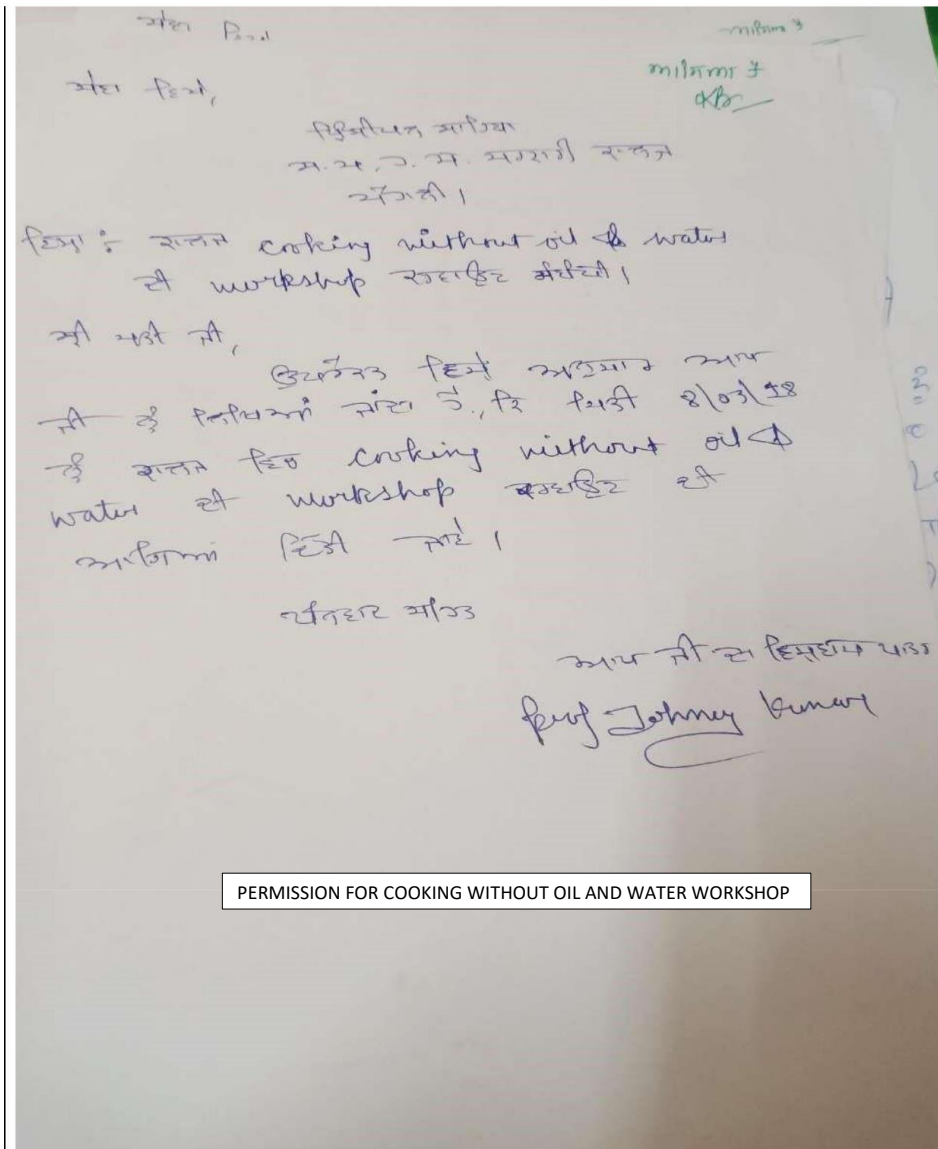 ਸੇਵਾ ਵਿਖੇ
ਆਗਿਆ ਹੈ
ਸੇਵਾ ਵਿਖੇ,
ਪ੍ਰਿੰਸੀਪਲ ਸਾਹਿਬਾ
ਸ.ਸ.ਹ.ਸ. ਸਰਕਾਰੀ ਕਾਲਜ
ਵਿਸ਼ਾ : ਕਾਲਜ cooking without oil & water
ਦੀ workshop ਕਰਵਾਉਣ ਸੰਬੰਧੀ।
ਸ੍ਰੀ ਮਤੀ ਜੀ,
ਉਪਰੋਕਤ ਵਿਸ਼ੇ ਅਨੁਸਾਰ ਆਪ
ਜੀ ਨੂੰ ਲਿਖਿਆ ਜਾਂਦਾ ਹੈ, ਕਿ ਮਿਤੀ 8/03/18
ਨੂੰ ਕਾਲਜ ਵਿਚ cooking without oil &
water ਦੀ workshop ਕਰਵਾਉਣ ਦੀ
ਆਗਿਆ ਦਿੱਤੀ ਜਾਵੇ।
ਧੰਨਵਾਦ ਸਹਿਤ
ਆਪ ਜੀ ਦਾ ਵਿਸ਼ਵਾਸ ਪਾਤਰ
Prof Johney Kumar
PERMISSION FOR COOKING WITHOUT OIL AND WATER WORKSHOP